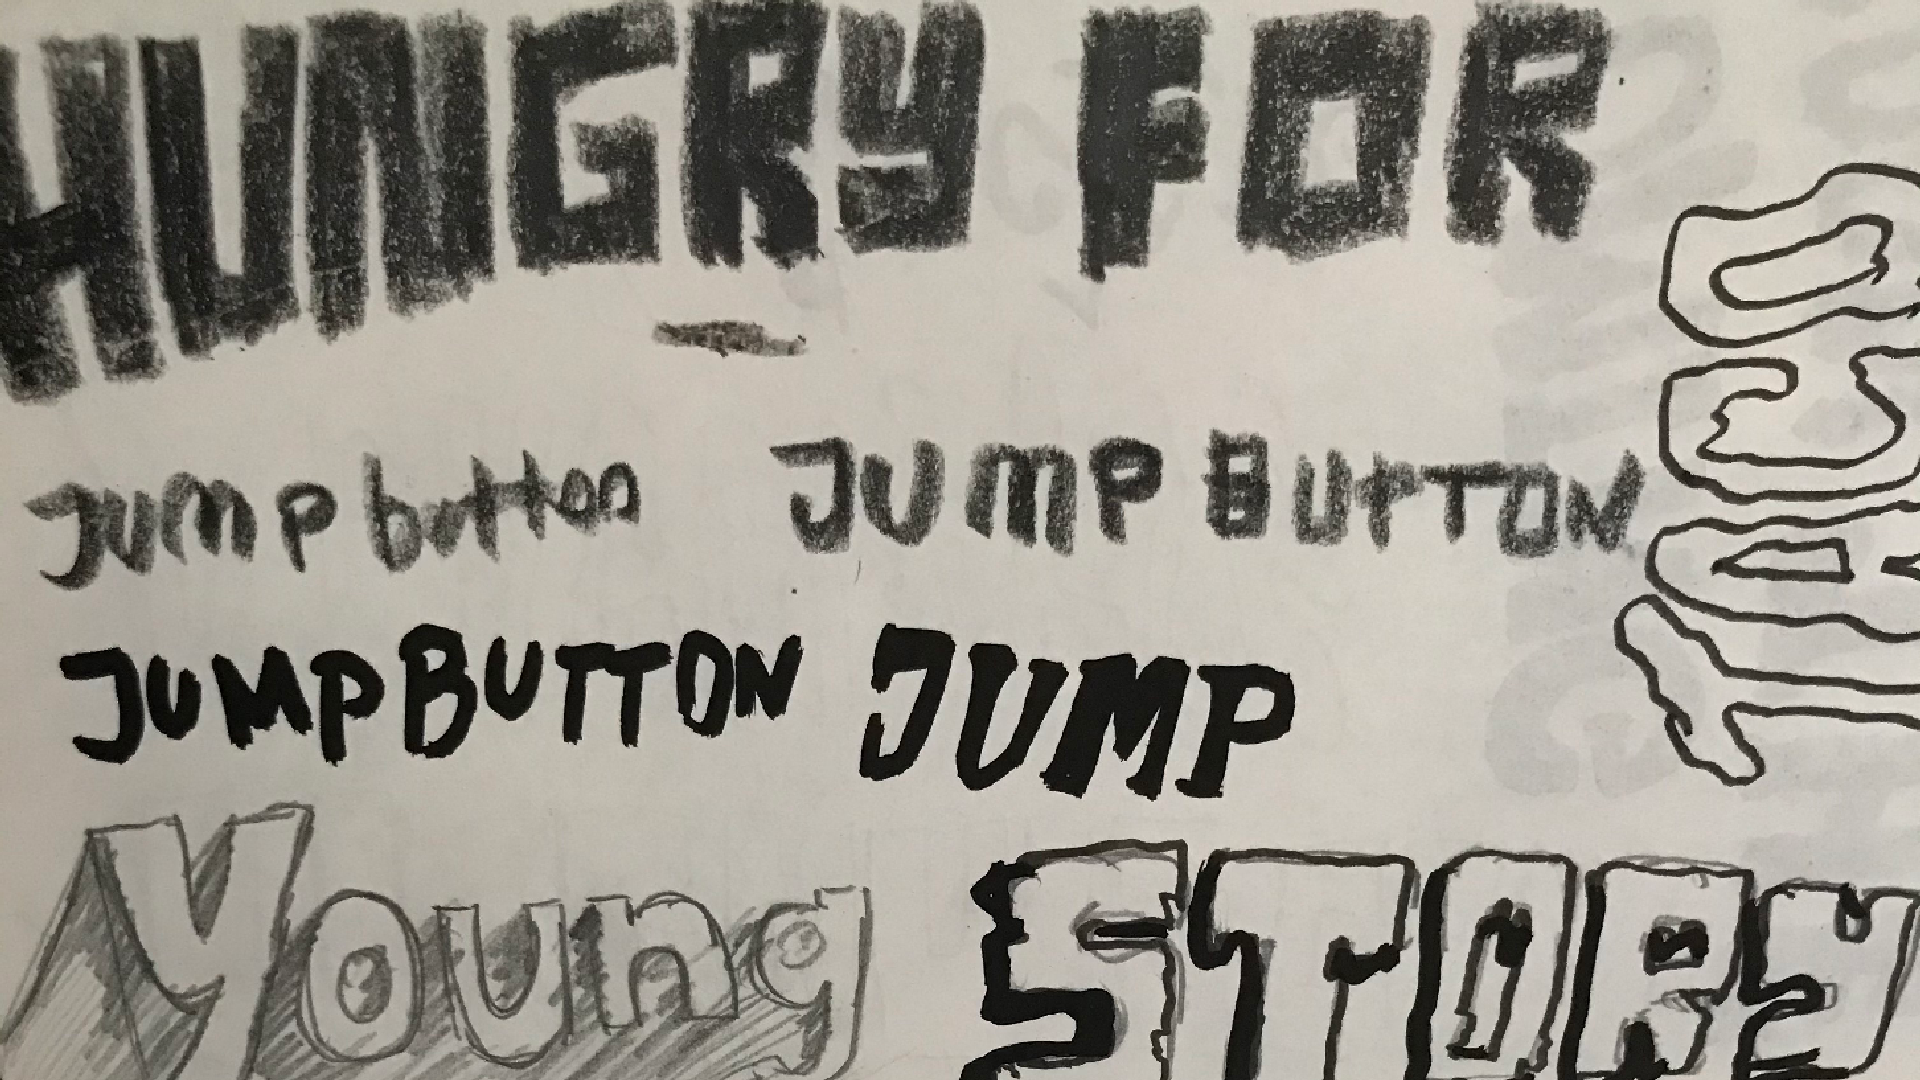 HUNGRY FOR
Jump button JUMP BUTTON
JUMPBUTTON JUMP
Young STORY